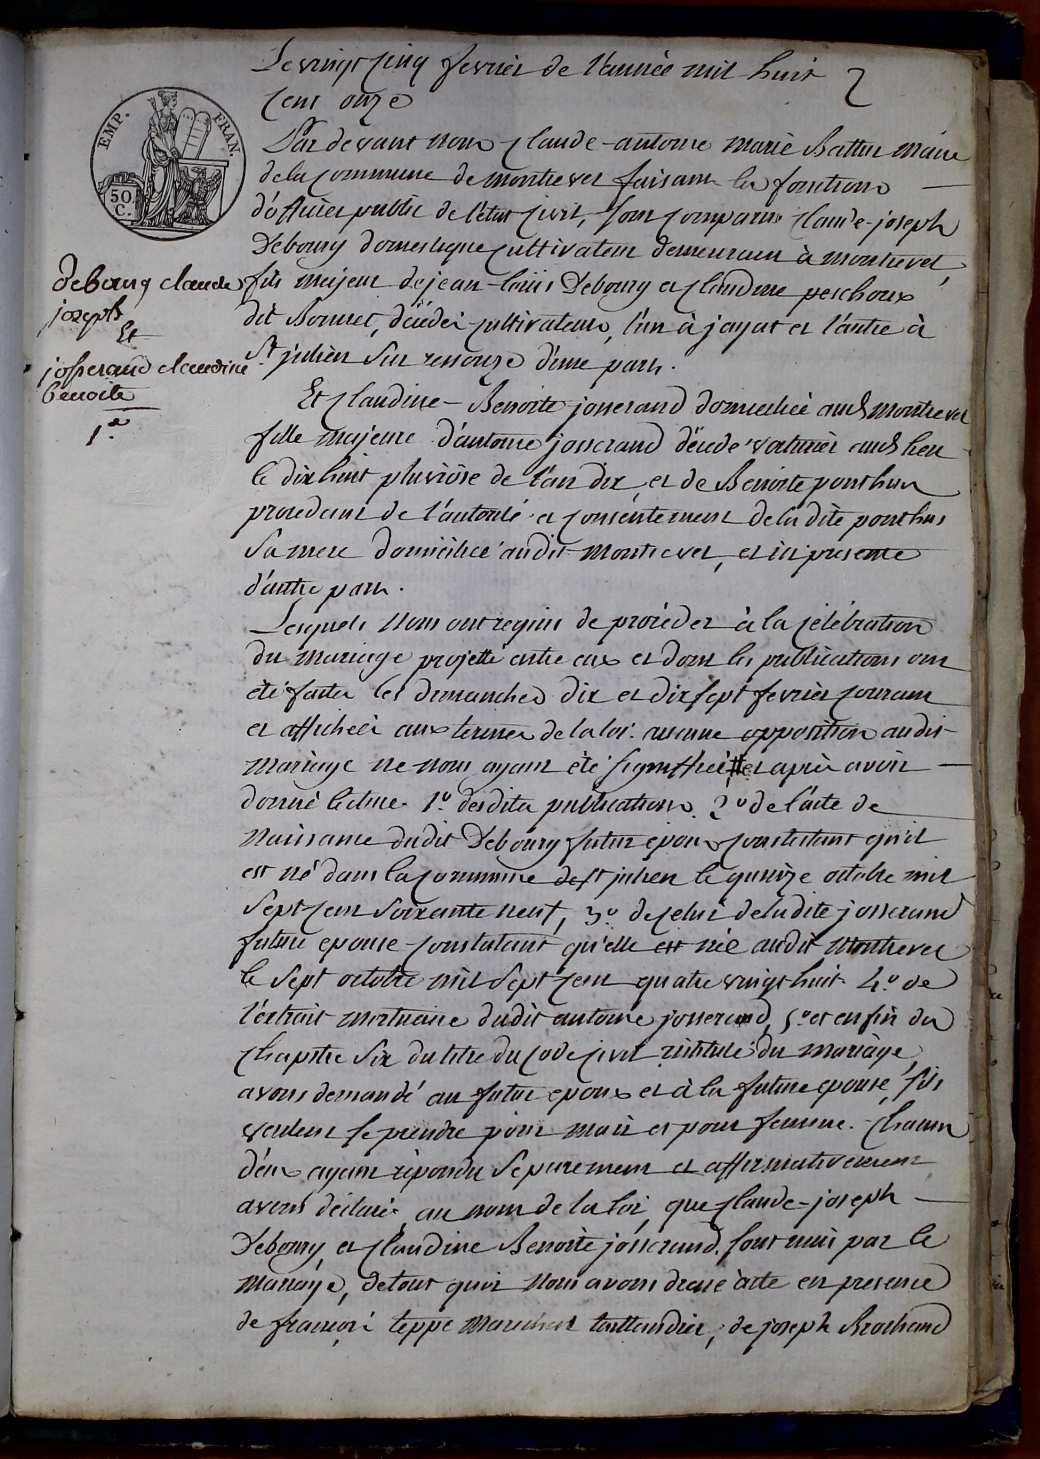 Le vingt cinq fevrier de l'année mil huit
2
cens onze
EMP. FRAN.
50 C.
Par devant nous Claude-antoine marie Battur Maire
de la Commune de montrevel faisant les fonctions
d'officier public de l'état civil, sont comparus Claude-joseph
Debourg domestique cultivateur demeurant à montrevel,
debourg claude
joseph
Et
josserand claudine
benoite
1.er
fils majeur de jean-louis Debourg et Claudine peschoux
dit Bonnet, décédés cultivateurs, l'un à jayat et l'autre à
St julien sur ressouze d'une part.
Et Claudine-Benoite josserand domiciliée audt montrevel
fille majeure d'antoine josserand décédé voiturier audt lieu
le dix huit pluviôse de l'an dix, et de Benoite ponthus
procedant de l'autorité et consentement de la dite ponthus
sa mere domiciliée audit montrevel, et ici presente
d'autre part.
Lesquels nous ont requis de procéder à la célébration
du mariage projetté entre eux et dont les publications ont
été faites les dimanches dix et dix sept fevrier courant
et affichées aux termes de la loi. aucune opposition audit
mariage ne nous ayant été signifiée, et après avoir
donné lecture 1.º desdites publications 2.º de l'acte de
naissance dudit Debourg futur epoux constatant qu'il
est né dans la commune de st julien le quinze octobre mil
sept cent soixante neuf, 3.º de celui de la dite josserand
future epouse constatant qu'elle est née audit montrevel
le sept octobre mil sept cent quatre vingt huit 4.º de
l'extrait mortuaire dudit antoine josserand, 5.º et enfin du
chapitre six du titre du Code civil intitulé du mariage,
avons demandé au futur epoux et à la future epouse, s'ils
veulent se prendre pour mari et pour femme. Chacun
d'eux ayant répondu separement et affirmativement
avons déclaré, au nom de la loi, que Claude-joseph
Debourg et Claudine Benoite josserand, sont unis par le
mariage, de tout quoi nous avons dressé acte en presence
de françois teppe marechal taillandier, de joseph Brochand